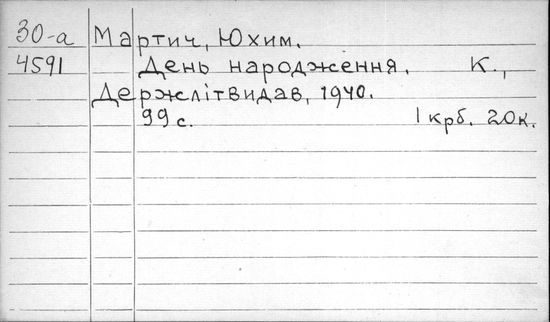 30-а Мартич, Юхим.
4591 День народження. К.,
Держлітвидав, 1940.
99 с. 1 крб. 20 к.